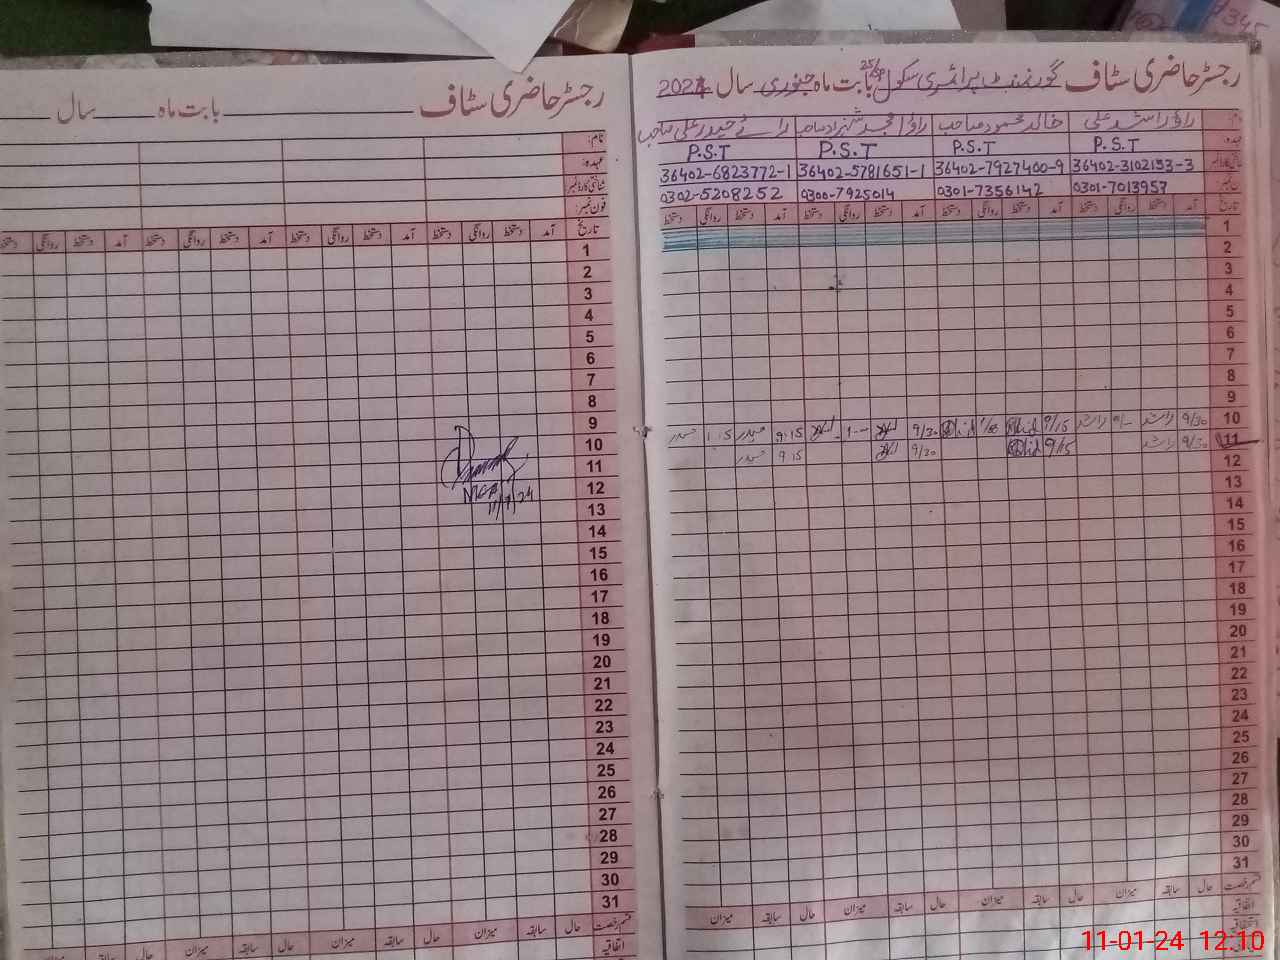 رجسٹر حاضری سٹاف گورنمنٹ پرائمری سکول 25/SP بابت ماہ جنوری سال 2024
نام: راؤ راشد علی خالد محمود صاحب راؤ امجد شہزاد صاحب رائے حیدر علی صاحب
عہدہ: P.S.T P.S.T P.S.T P.S.T
شناختی کارڈ نمبر 36402-3102153-3 36402-7927400-9 36402-5781651-1 36402-6823772-1
فون نمبر: 0301-7013957 0301-7356142 0300-7925014 0302-5208252
تاریخ آمد دستخط روانگی دستخط آمد دستخط روانگی دستخط آمد دستخط روانگی دستخط آمد دستخط روانگی دستخط
1
2
3
4
5
6
7
8
9
10 9/30 راشد راشد 9/15 9/30 9:15 حیدر 1:15 حیدر
11 9/30 راشد 9/15 9/30 9:15 حیدر
12
13
14
15
16
17
18
19
20
21
22
23
24
25
26
27
28
29
30
31
قسم رخصت حال سابقہ میزان حال سابقہ میزان حال سابقہ میزان حال سابقہ میزان
اتفاقیہ
رجسٹر حاضری سٹاف بابت ماہ سال
نام:
عہدہ:
شناختی کارڈ نمبر
فون نمبر:
تاریخ آمد دستخط روانگی دستخط آمد دستخط روانگی دستخط آمد دستخط روانگی دستخط آمد دستخط روانگی دستخط
1
2
3
4
5
6
7
8
9
10
11
12
13
14
15
16
17
18
19
20
21
22
23
24
25
26
27
28
29
30
31
قسم رخصت حال سابقہ میزان حال سابقہ میزان حال سابقہ میزان حال سابقہ میزان
اتفاقیہ
11/1/24
345
11-01-24 12:10